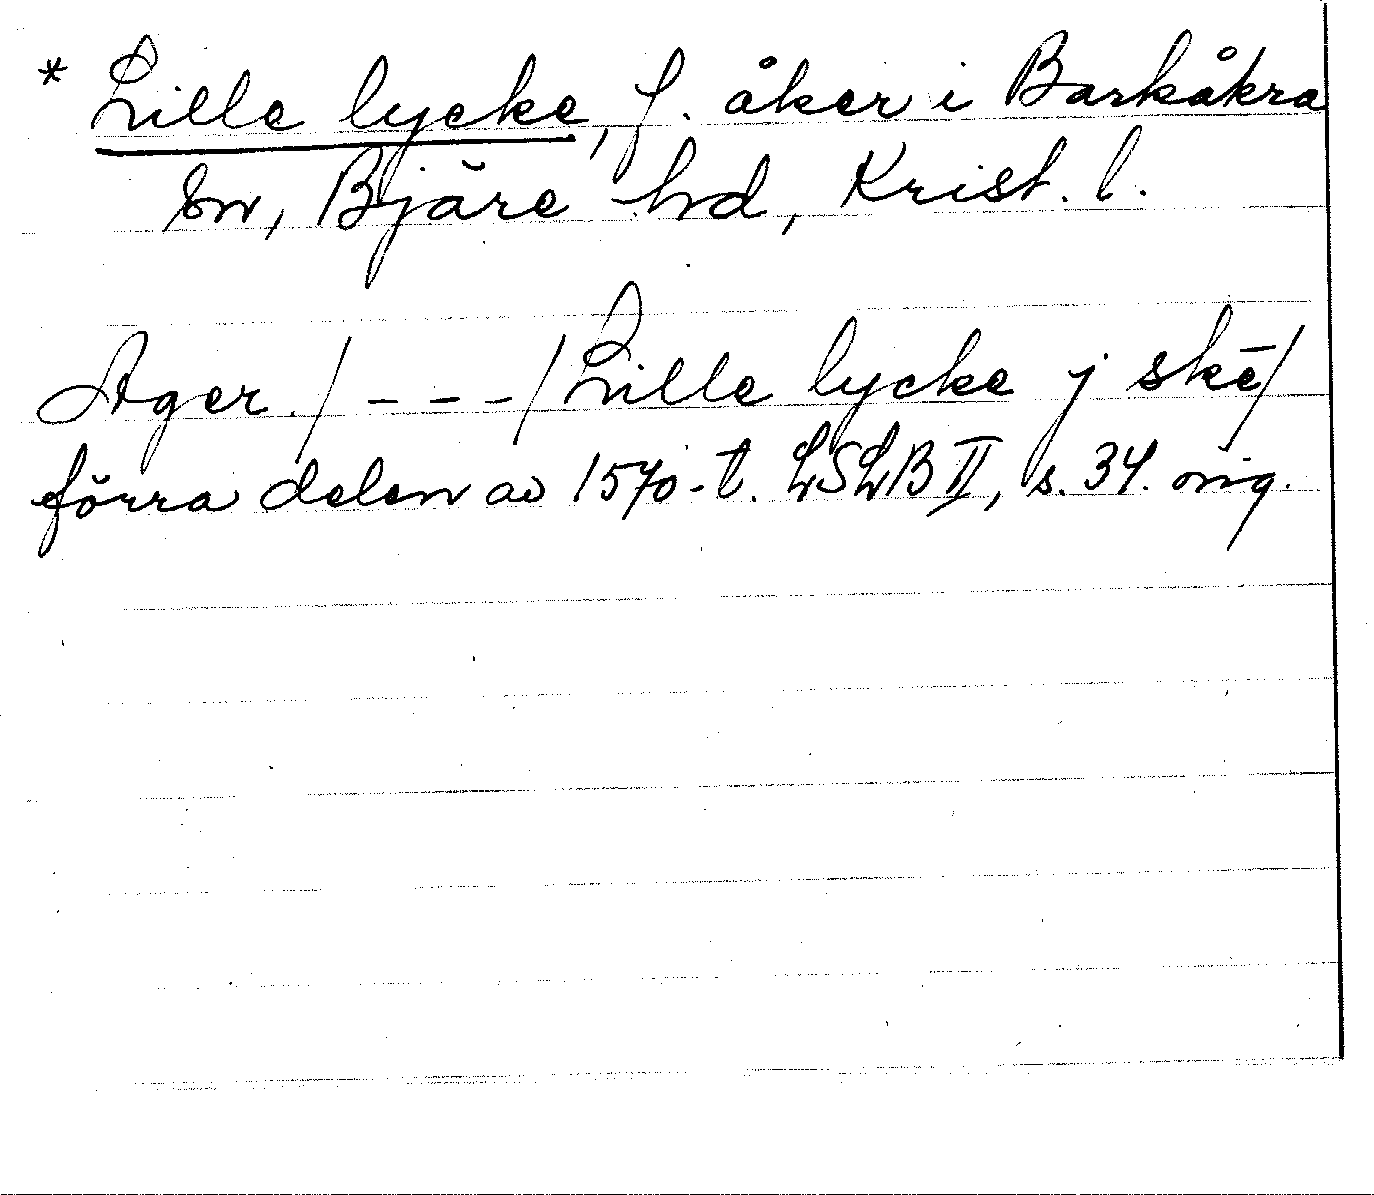 * Lille lycke, f. åker i Barkåkra
sn, Bjäre hd, Krist. l.
Ager. / - - - / Lille lycke j skē /
förra delen av 1570-t. LSLB II, s. 34. orig.